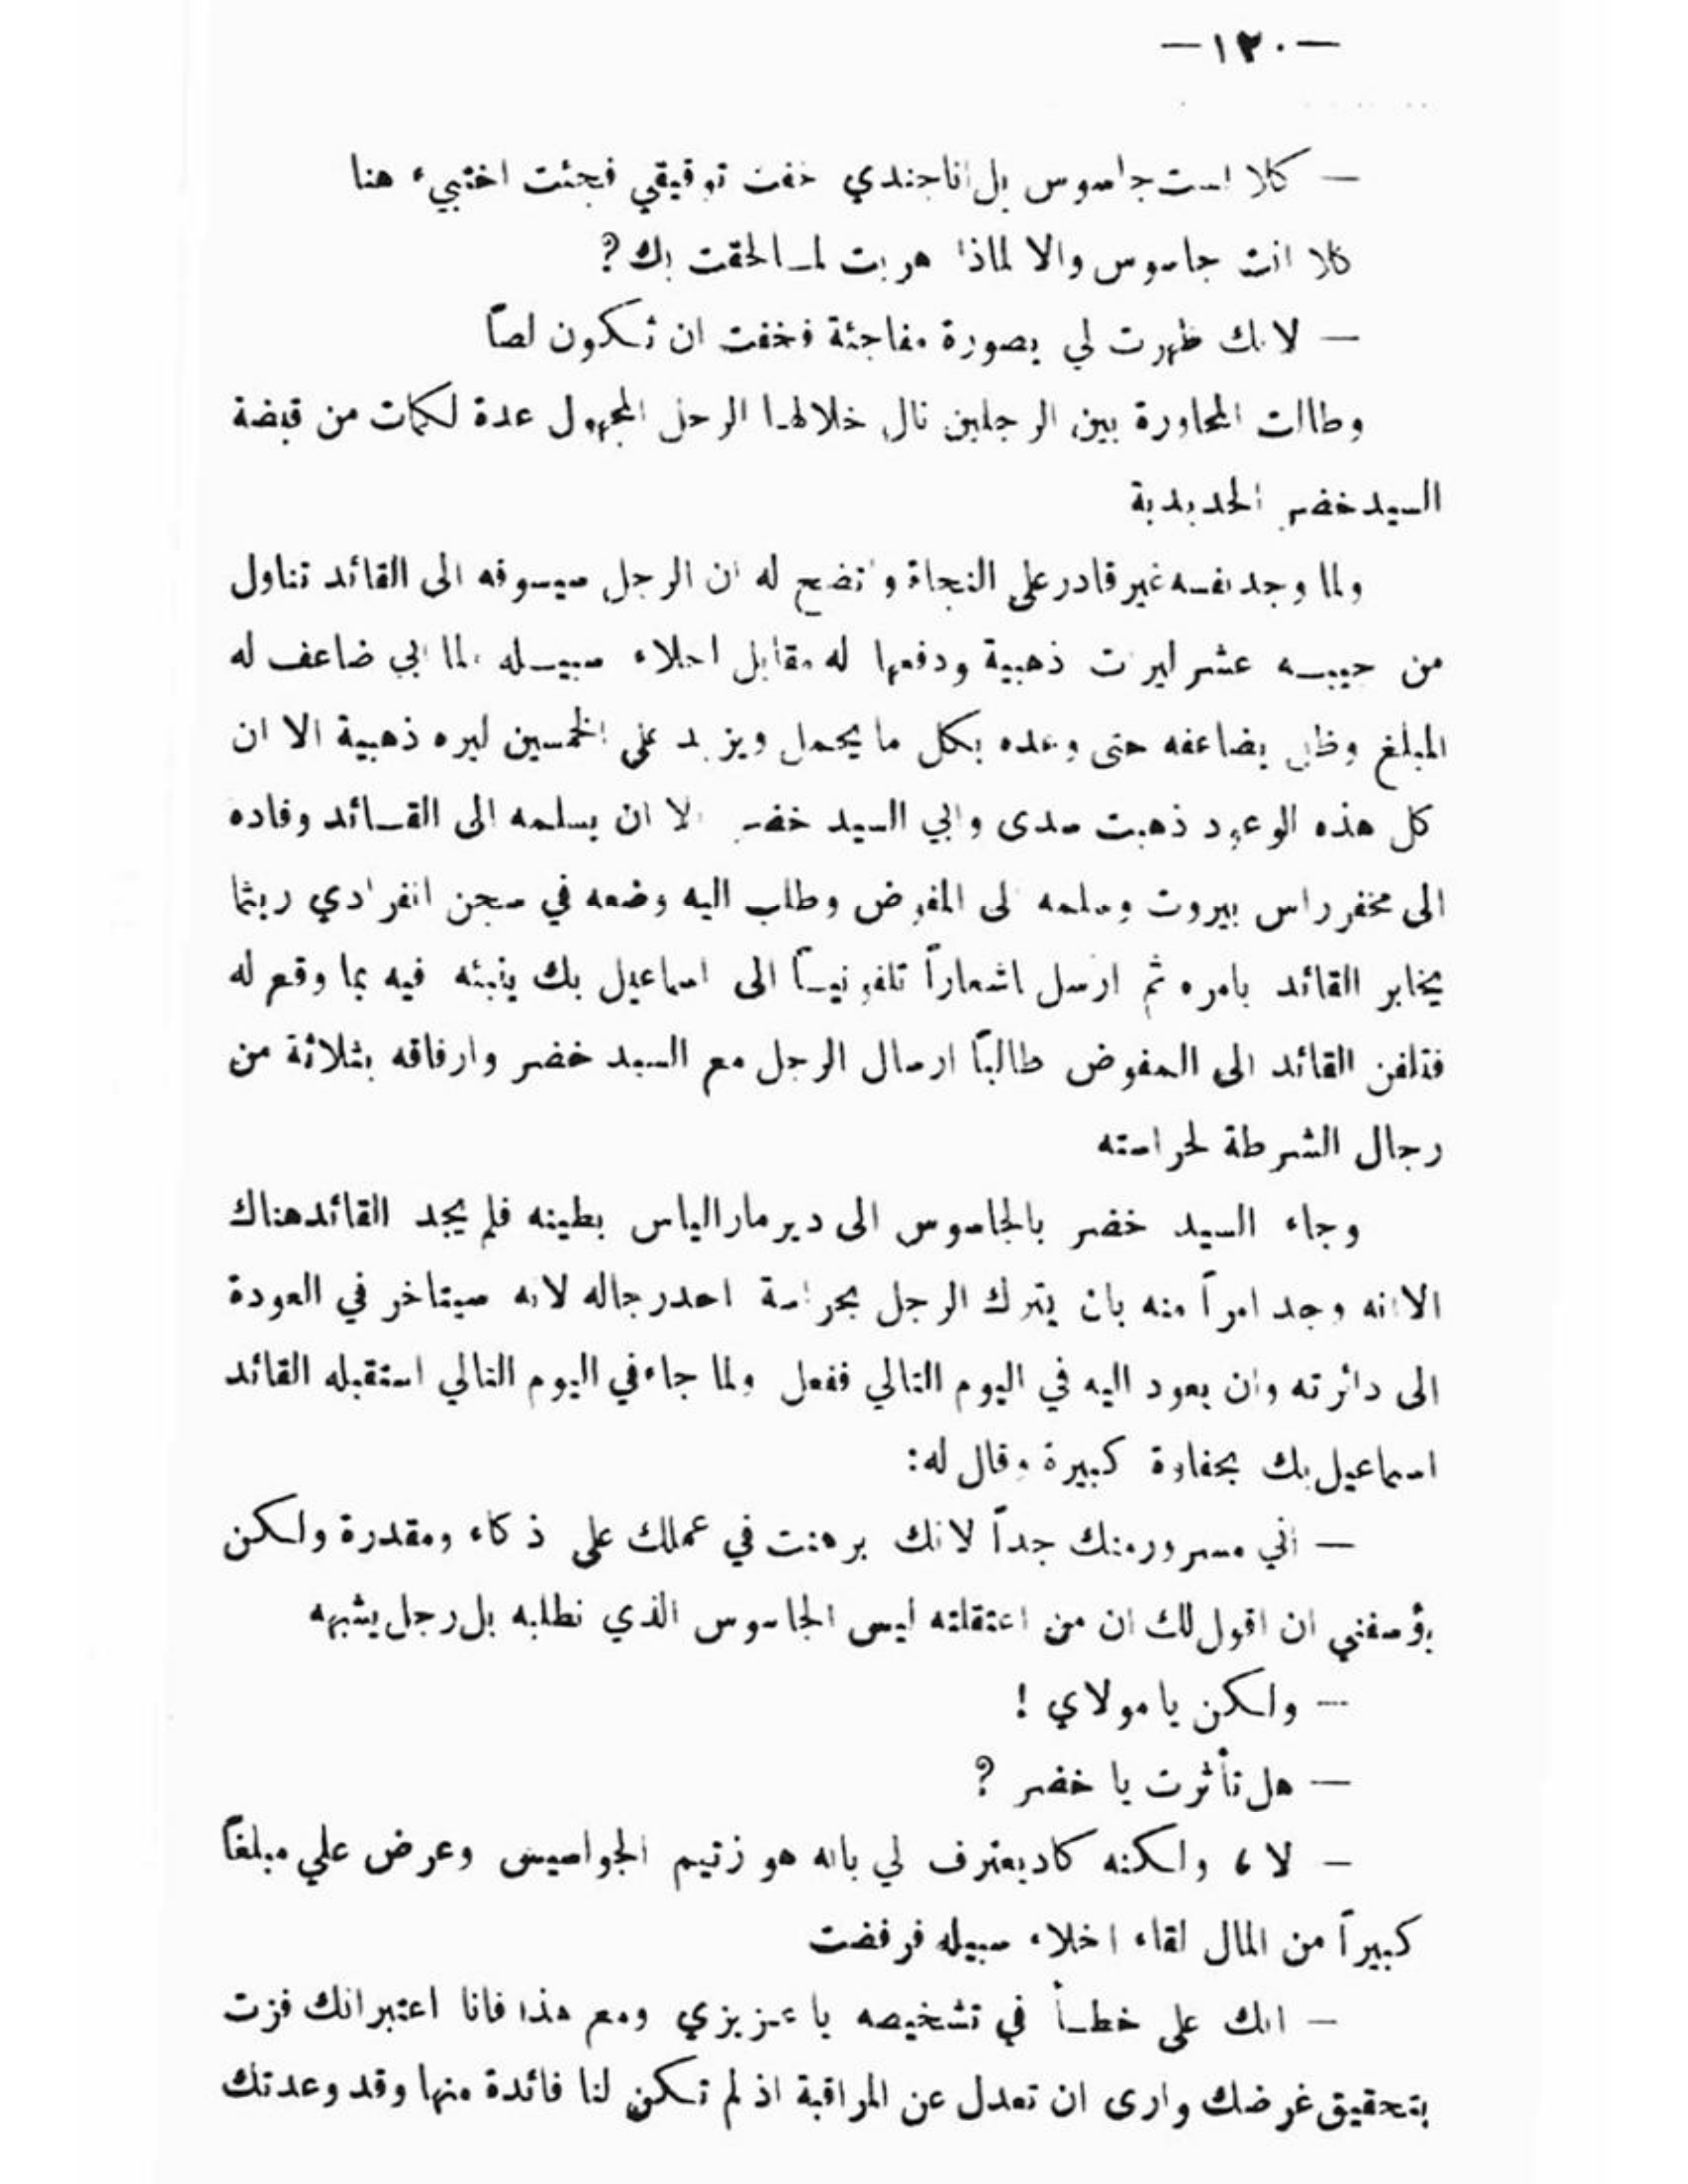 —١٢٠—
— كلا لست جاسوس بل انا جندي خفت توقيفي فجئت اختبيء هنا
كلا انت جاسوس والا لماذا هربت لمـا لحقت بك ?
— لانك ظهرت لي بصورة مفاجئة فخفت ان تكون لصاً
وطالت المحاورة بين الرجلين نال خلالها الرجل المجهول عدة لكمات من قبضة
السيد خضر الحديدية
ولما وجد نفسه غير قادر على النجاة واتضح له ان الرجل سيسوقه الى القائد تناول
من جيبـه عشر ليرات ذهبية ودفعها له مقابل اخلاء سبيـله فلما ابي ضاعف له
المبلغ وظل يضاعفه حتى وعده بكل ما يحمل ويزيد على الخمسين ليره ذهبية الا ان
كل هذه الوعود ذهبت سدى وابي السيد خضر الا ان يسلمه الى القـائد وقاده
الى مخفر راس بيروت وسلمه الى المفوض وطلب اليه وضعه في سجن انفرادي ريثما
يخابر القائد بامره ثم ارسل اشعاراً تلفونيـاً الى اسماعيل بك ينبئه فيه بما وقع له
فتلفن القائد الى المفوض طالباً ارسال الرجل مع السيد خضر وارفاقه بثلاثة من
رجال الشرطة لحراسته
وجاء السيد خضر بالجاسوس الى دير مار الياس بطينه فلم يجد القائد هناك
الا انه وجد امراً منه بان يترك الرجل بحراسة احد رجاله لانه سيتاخر في العودة
الى دائرته وان يعود اليه في اليوم التالي ففعل ولما جاء في اليوم التالي استقبله القائد
اسماعيل بك بحفاوة كبيرة وقال له :
— اني مسرور منك جداً لانك برهنت في عملك على ذكاء ومقدرة ولكن
يؤسفني ان اقول لك ان من اعتقلته ليس الجاسوس الذي نطلبه بل رجل يشبهه
— ولكن يا مولاي !
— هل تأثرت يا خضر ?
— لا ، ولكنه كاد يعترف لي بانه هو زتيم الجواسيس وعرض علي مبلغاً
كبيراً من المال لقاء اخلاء سبيله فرفضت
— انك على خطـأ في تشخيصه يا عزيزي ومع هذا فانا اعتبر انك فزت
بتحقيق غرضك وارى ان تعدل عن المراقبة اذ لم تكن لنا فائدة منها وقد وعدتك